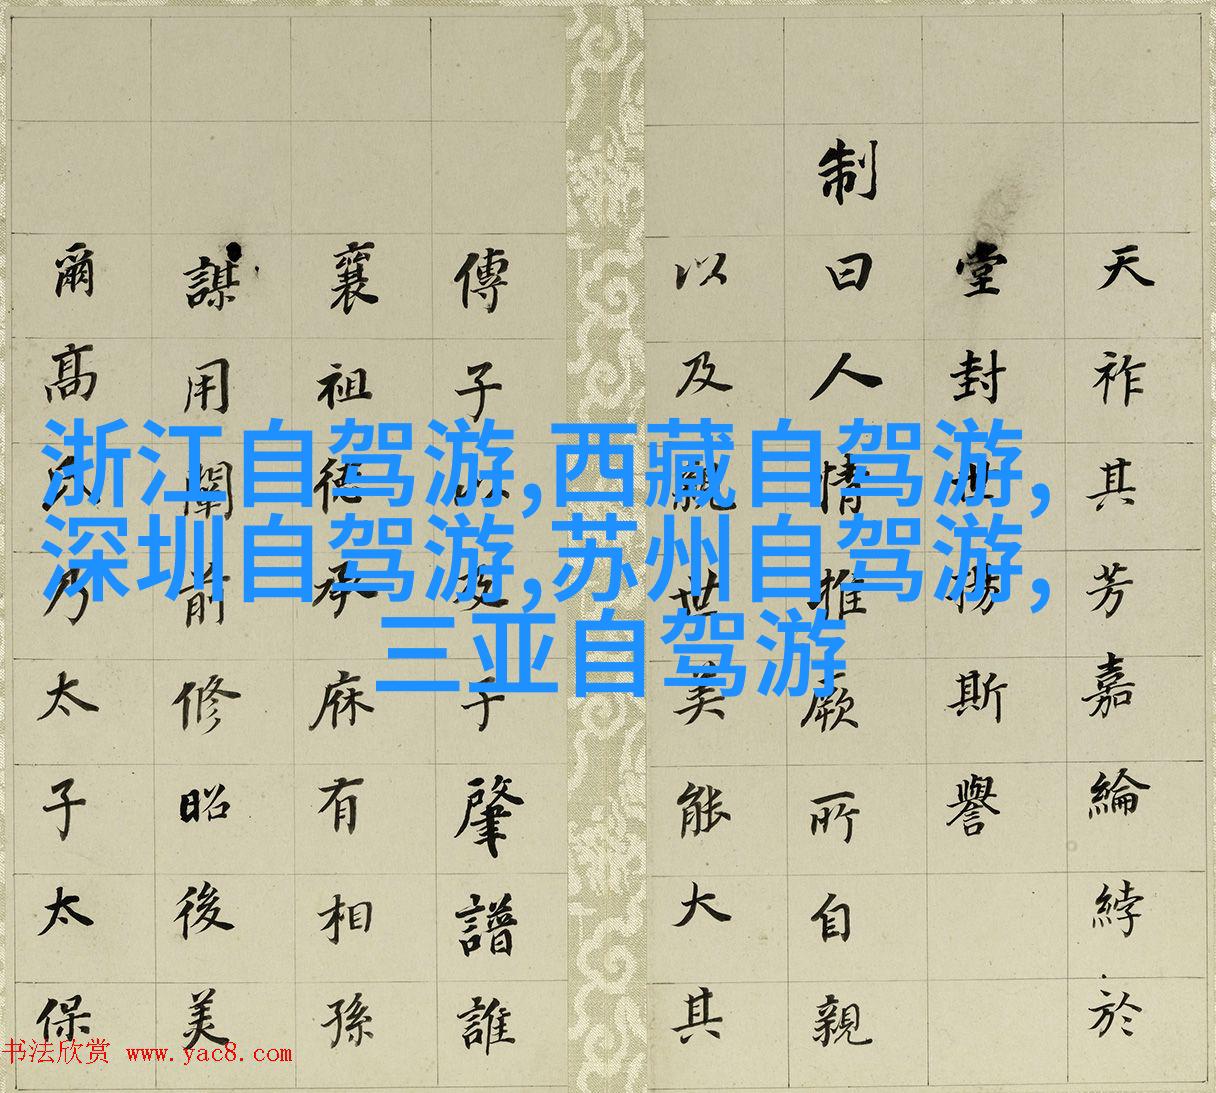 天祚其芳嘉綸綍於
堂封世揚斯譽
制曰人情推厥所自親
以及親世美能大其
傳子以及于肇譜誰
襄祖德承庥有相孫
謀用闡前修昭後美
爾高氏乃太子太保
浙江自驾游,西藏自驾游,
深圳自驾游,苏州自驾游,
三亚自驾游
书法欣赏 www.yac8.com